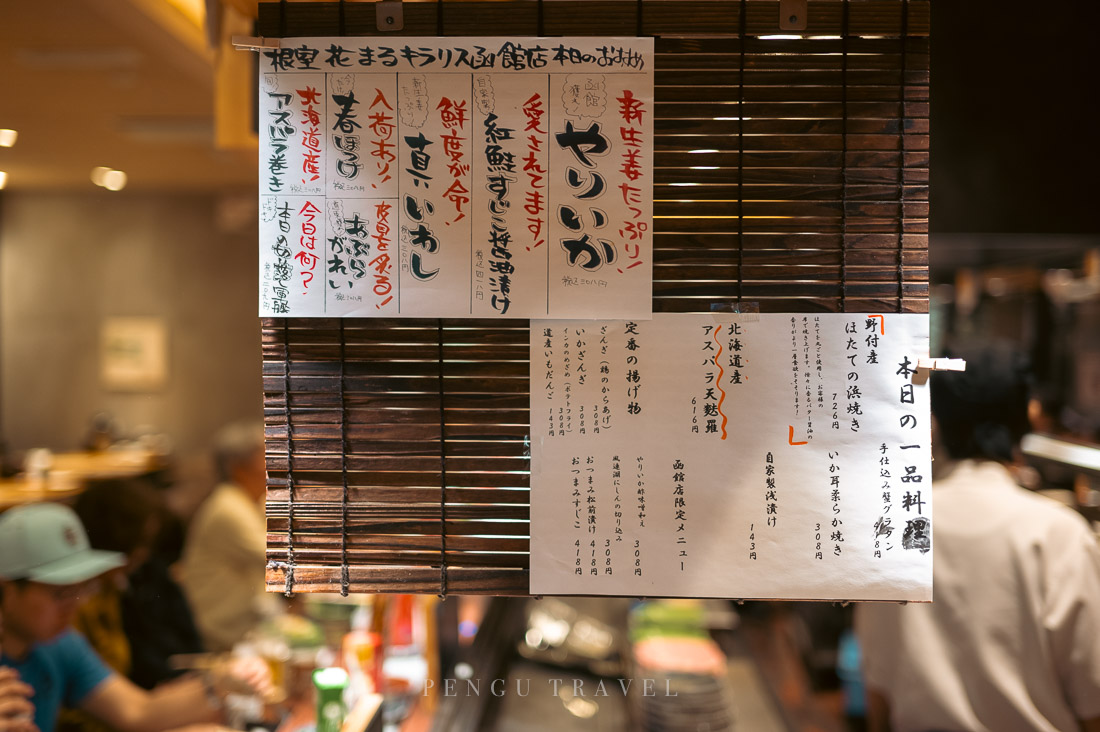 根室花まるキラリス函館店 本日のおすすめ
新生姜たっぷり!
函館
やりいか
愛されてます!
自家製
紅鮭すじこ醤油漬け
鮮度が命!
真いわし
入荷あり!
春ほっけ
北海道産!
アスパラ巻き
皮目を炙る!
あぶらがれい
今日は何?
本日の
本日の一品料理
手仕込み蟹グラタン
野付産
ほたての浜焼き
726円
いか耳柔らか焼き
308円
北海道産
アスパラ天麩羅
616円
自家製浅漬け
143円
定番の揚げ物
ざんぎ(鶏のからあげ)
308円
いかざんぎ
308円
インカのめざめ(ポテトフライ)
308円
道産いもだんご
143円
函館店限定メニュー
やりいか酢味噌和え
308円
風連湖にしんの切り込み
308円
おつまみ松前漬け
418円
おつまみすじこ
418円
PENGU TRAVEL